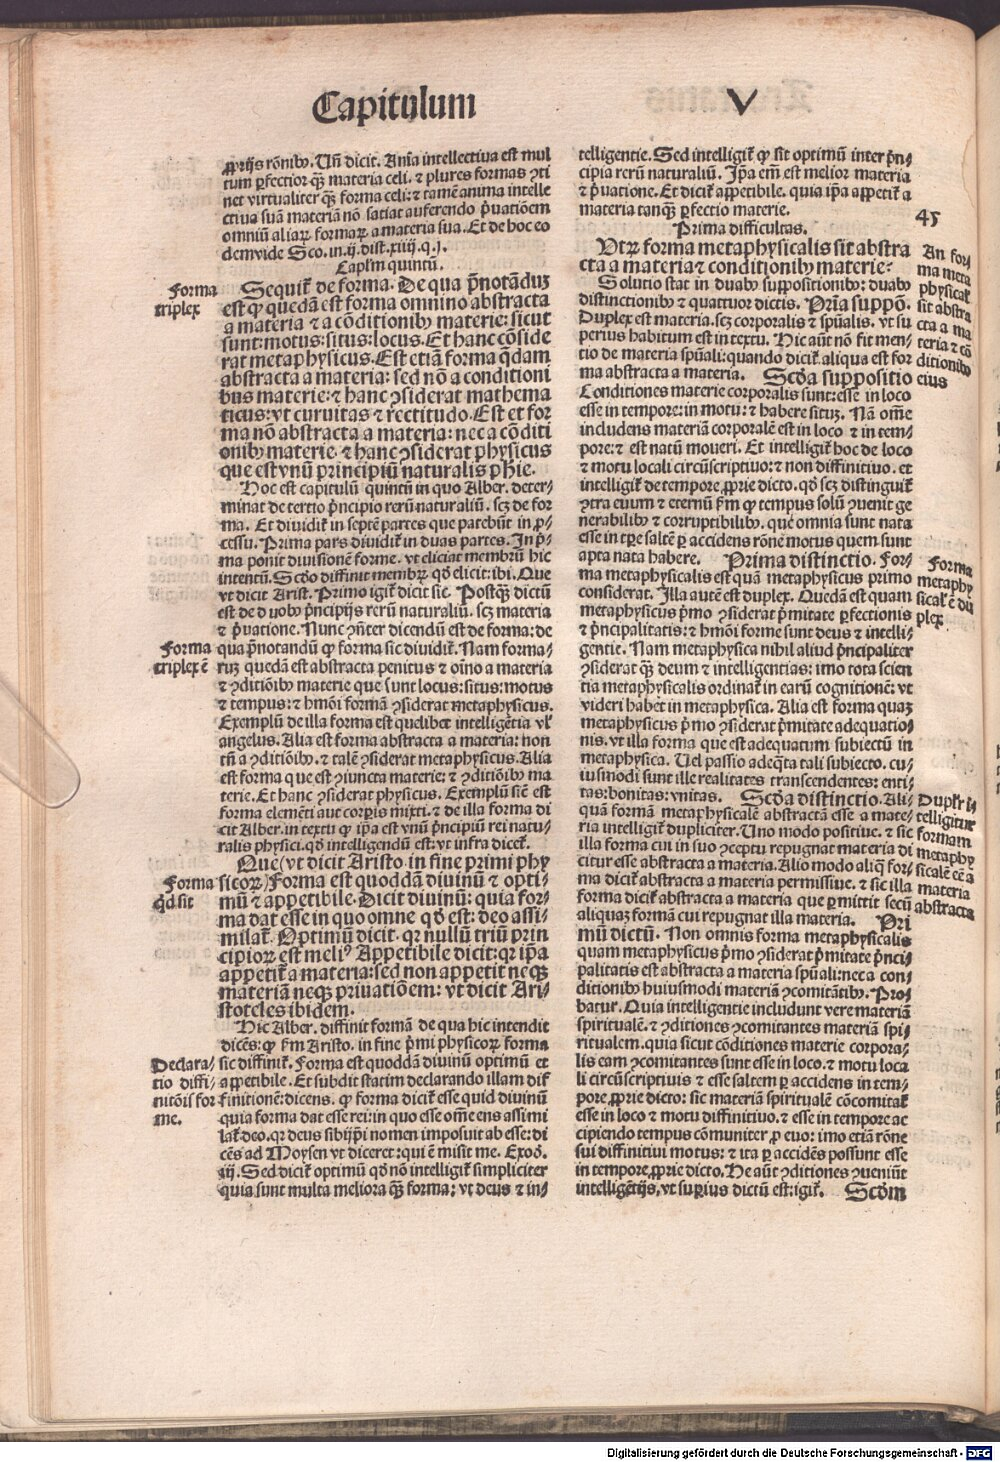 Capitulum V
ꝓprijs rōnibꝰ. Vn̄ dicit. Aīa intellectiua est mul
tum ꝑfectior qꝫ materia celi. ⁊ plures formas ꝯti
net virtualiter qꝫ forma celi: ⁊ tamē anima intelle
ctiua suā materiā nō satiat auferendo p̄uatiōem
omniū aliaꝝ formaꝝ a materia sua. Et de hoc eo
dem vide Sco. in .ij. dist. xiiij. q. j.
Caplm quintū.
Forma
triplex
Sequit̉ de forma. De qua p̄notāduꝫ
est ꝙ quedā est forma omnino abstracta
a materia ⁊ a cōditionibꝰ materie: sicut
sunt: motus: situs: locus. Et hanc cōside
rat metaphysicus. Est etiā forma q̄dam
abstracta a materia: sed nō a conditioni
bus materie: ⁊ hanc ꝯsiderat mathema
ticus: vt curuitas ⁊ rectitudo. Est et for
ma nō abstracta a materia: nec a cōditi
onibꝰ materie. ⁊ hanc ꝯsiderat physicus
que est vnū principiū naturalis phie.
Hoc est capitulū quintū in quo Alber. deter⸗
minat de tertio p̄ncipio rerū naturaliū. scꝫ de for
ma. Et diuidit̉ in septē partes que patebūt in ꝓ⸗
cessu. Prima pars diuidit̉ in duas partes. In p̄⸗
ma ponit diuisionē forme. vt eliciat membrū hic
intentū. Scd̄o diffinit membꝝ qd̄ elicit: ibi. Que
vt dicit Arist. Primo igit̉ dicit sic. Postqꝫ dictū
est de duobꝰ p̄ncipijs rerū naturaliū. scꝫ materia
⁊ p̄uatione. Nunc ꝯn̄ter dicendū est de forma: de
Forma
triplex ē
qua p̄notandū ꝙ forma sic diuidit̉. Nam forma⸗
ruꝫ quedā est abstracta penitus ⁊ oīno a materia
⁊ ꝯditiōibꝰ materie que sunt locus: situs: motus
⁊ tempus: ⁊ hmōi formā ꝯsiderat metaphysicus.
Exemplū de illa forma est quelibet intelligētia vl̉
angelus. Alia est forma abstracta a materia: non
tn̄ a ꝯditiōibꝰ. ⁊ talē ꝯsiderat metaphysicus. Alia
est forma que est ꝯiuncta materie: ⁊ ꝯditiōibꝰ ma
terie. Et hanc ꝯsiderat physicus. Exemplū sicē est
forma elemēti aut corꝑis mixti. ⁊ de illa forma di
cit Alber. in textu ꝙ ip̄a est vnū p̄ncipiū rei natu⸗
ralis physici. qd̄ intelligendū est: vt infra dicet̉.
Forma
qd̄ sit
Que (vt dicit Aristo. in fine primi phy
sicoꝝ) Forma est quoddā diuinū ⁊ opti⸗
mū ⁊ appetibile. Dicit diuinū: quia for⸗
ma dat esse in quo omne qd̄ est: deo assi⸗
milat̉. Optimū dicit. qr nullū triū prin
cipioꝝ est meliꝰ Appetibile dicit: qr ip̄a
appetit̉ a materia: sed non appetit neqꝫ
materiā neqꝫ priuatiōem: vt dicit Ari⸗
stoteles ibidem.
Hic Alber. diffinit formā de qua hic intendit
dicēs: ꝙ ẜm Aristo. in fine p̄mi physicoꝝ forma
Declara⸗
tio diffi⸗
nitōis for
me.
sic diffinit̉. Forma est quoddā diuinū optimū et
appetibile. Et subdit statim declarando illam dif
finitionē: dicens. ꝙ forma dicit̉ esse quid diuinū
quia forma dat esse rei: in quo esse om̄e ens assimi
lat̉ deo. qr deus sibijp̄i nomen imposuit ab esse: di
cēs ad Moysen vt diceret: qui ē misit me. Exod̄.
iij. Sed dicit̉ optimū qd̄ nō intelligit̉ simpliciter
quia sunt multa meliora qꝫ forma: vt deus ⁊ in⸗
telligentie. Sed intelligit̉ ꝙ sit optimū inter p̄n⸗
cipia rerū naturaliū. Ip̄a em̄ est melior materia
⁊ p̄uatione. Et dicit̉ appetibile. quia ip̄a appetit̉ a
materia tanqꝫ ꝑfectio materie.
45
Prima difficultas.
An for⸗
ma meta
physical̉
sit abstra
cta a ma
teria ⁊ cō
ditionibꝰ
eius
Vtꝝ forma metaphysicalis sit abstra
cta a materia ⁊ conditionibꝰ materie:
Solutio stat in duabꝰ suppositionibꝰ: duabꝰ
distinctionibꝰ ⁊ quatuor dictis. Pria suppō.
Duplex est materia. scꝫ corporalis ⁊ spūalis. vt su
perius habitum est in textu. Hic aūt nō fit men⸗
tio de materia spūali: quando dicit̉ aliqua est for
ma abstracta a materia. Scd̄a suppositio
Conditiones materie corporalis sunt: esse in loco
esse in tempore: in motu: ⁊ habere situꝫ. Nā om̄e
includens materiā corporalē est in loco ⁊ in tem⸗
pore: ⁊ est natū moueri. Et intelligit̉ hoc de loco
⁊ motu locali circūscriptiuo: ⁊ non diffinitiuo. et
intelligit̉ de tempore ꝓprie dicto. qd̄ scꝫ distinguit̉
ꝯtra euum ⁊ eternū ẜm ꝙ tempus solū ꝯuenit ge
nerabilibꝰ ⁊ corruptibilibꝰ. que omnia sunt nata
esse in tꝑe saltē ꝑ accidens rōne motus quem sunt
apta nata habere. Prima distinctio. For⸗
Forma
metaphy
sical̉ ē du
plex
ma metaphysicalis est quā metaphysicus primo
considerat. Illa autē est duplex. Quedā est quam
metaphysicus p̄mo ꝯsiderat p̄mitate ꝑfectionis
⁊ p̄ncipalitatis: ⁊ hmōi forme sunt deus ⁊ intelli⸗
gentie. Nam metaphysica nihil aliud p̄ncipaliter
ꝯsiderat qꝫ deum ⁊ intelligentias: imo tota scien
tia metaphysicalis ordinat̉ in earū cognitionē: vt
videri habet in metaphysica. Alia est forma quaꝫ
metaphysicus p̄mo ꝯsiderat p̄mitate adequatio⸗
nis. vt illa forma que est adequatum subiectū in
metaphysica. Vel passio adeq̄ta tali subiecto. cu⸗
iusmodi sunt ille realitates transcendentes: enti⸗
tas: bonitas: vnitas. Scd̄a distinctio. Ali⸗
Duplr̉ i⸗
telligitur
formam
metaphy
sicalē eē a
materia
abstracta
quā formā metaphysicalē abstractā esse a mate⸗
ria intelligit̉ dupliciter. Uno modo positiue. ⁊ sic
illa forma cui in suo ꝯceptu repugnat materia di
citur esse abstracta a materia. Alio modo aliq̄ for⸗
ma dicit̉ abstracta a materia permissiue. ⁊ sic illa
forma dicit̉ abstracta a materia que ꝑmittit secū
aliquaꝫ formā cui repugnat illa materia. Pri
mū dictū. Non omnis forma metaphysicalis
quam metaphysicus p̄mo ꝯsiderat p̄mitate p̄nci⸗
palitatis est abstracta a materia spūali: nec a con⸗
ditionibꝰ huiusmodi materiā ꝯcomitātibꝰ. Pro⸗
batur. Quia intelligentie includunt vere materiā
spiritualē. ⁊ ꝯditiones ꝯcomitantes materiā spi⸗
ritualem. quia sicut cōditiones materie corpora⸗
lis eam ꝯcomitantes sunt esse in loco. ⁊ motu loca
li circūscriptiuis ⁊ esse saltem ꝑ accidens in tem⸗
pore ꝓprie dicto: sic materiā spiritualē cōcomitat̉
esse in loco ⁊ motu diffinitiuo. ⁊ esse in tempore ac
cipiendo tempus cōmuniter ꝓ euo: imo etiā rōne
sui diffinitiui motus: ⁊ ita ꝑ accidēs possunt esse
in tempore ꝓprie dicto. He aūt ꝯditiones ꝯueniūt
intelligētijs, vt suꝑius dictū est: igit̉. Scd̄m
Digitalisierung gefördert durch die Deutsche Forschungsgemeinschaft - DFG